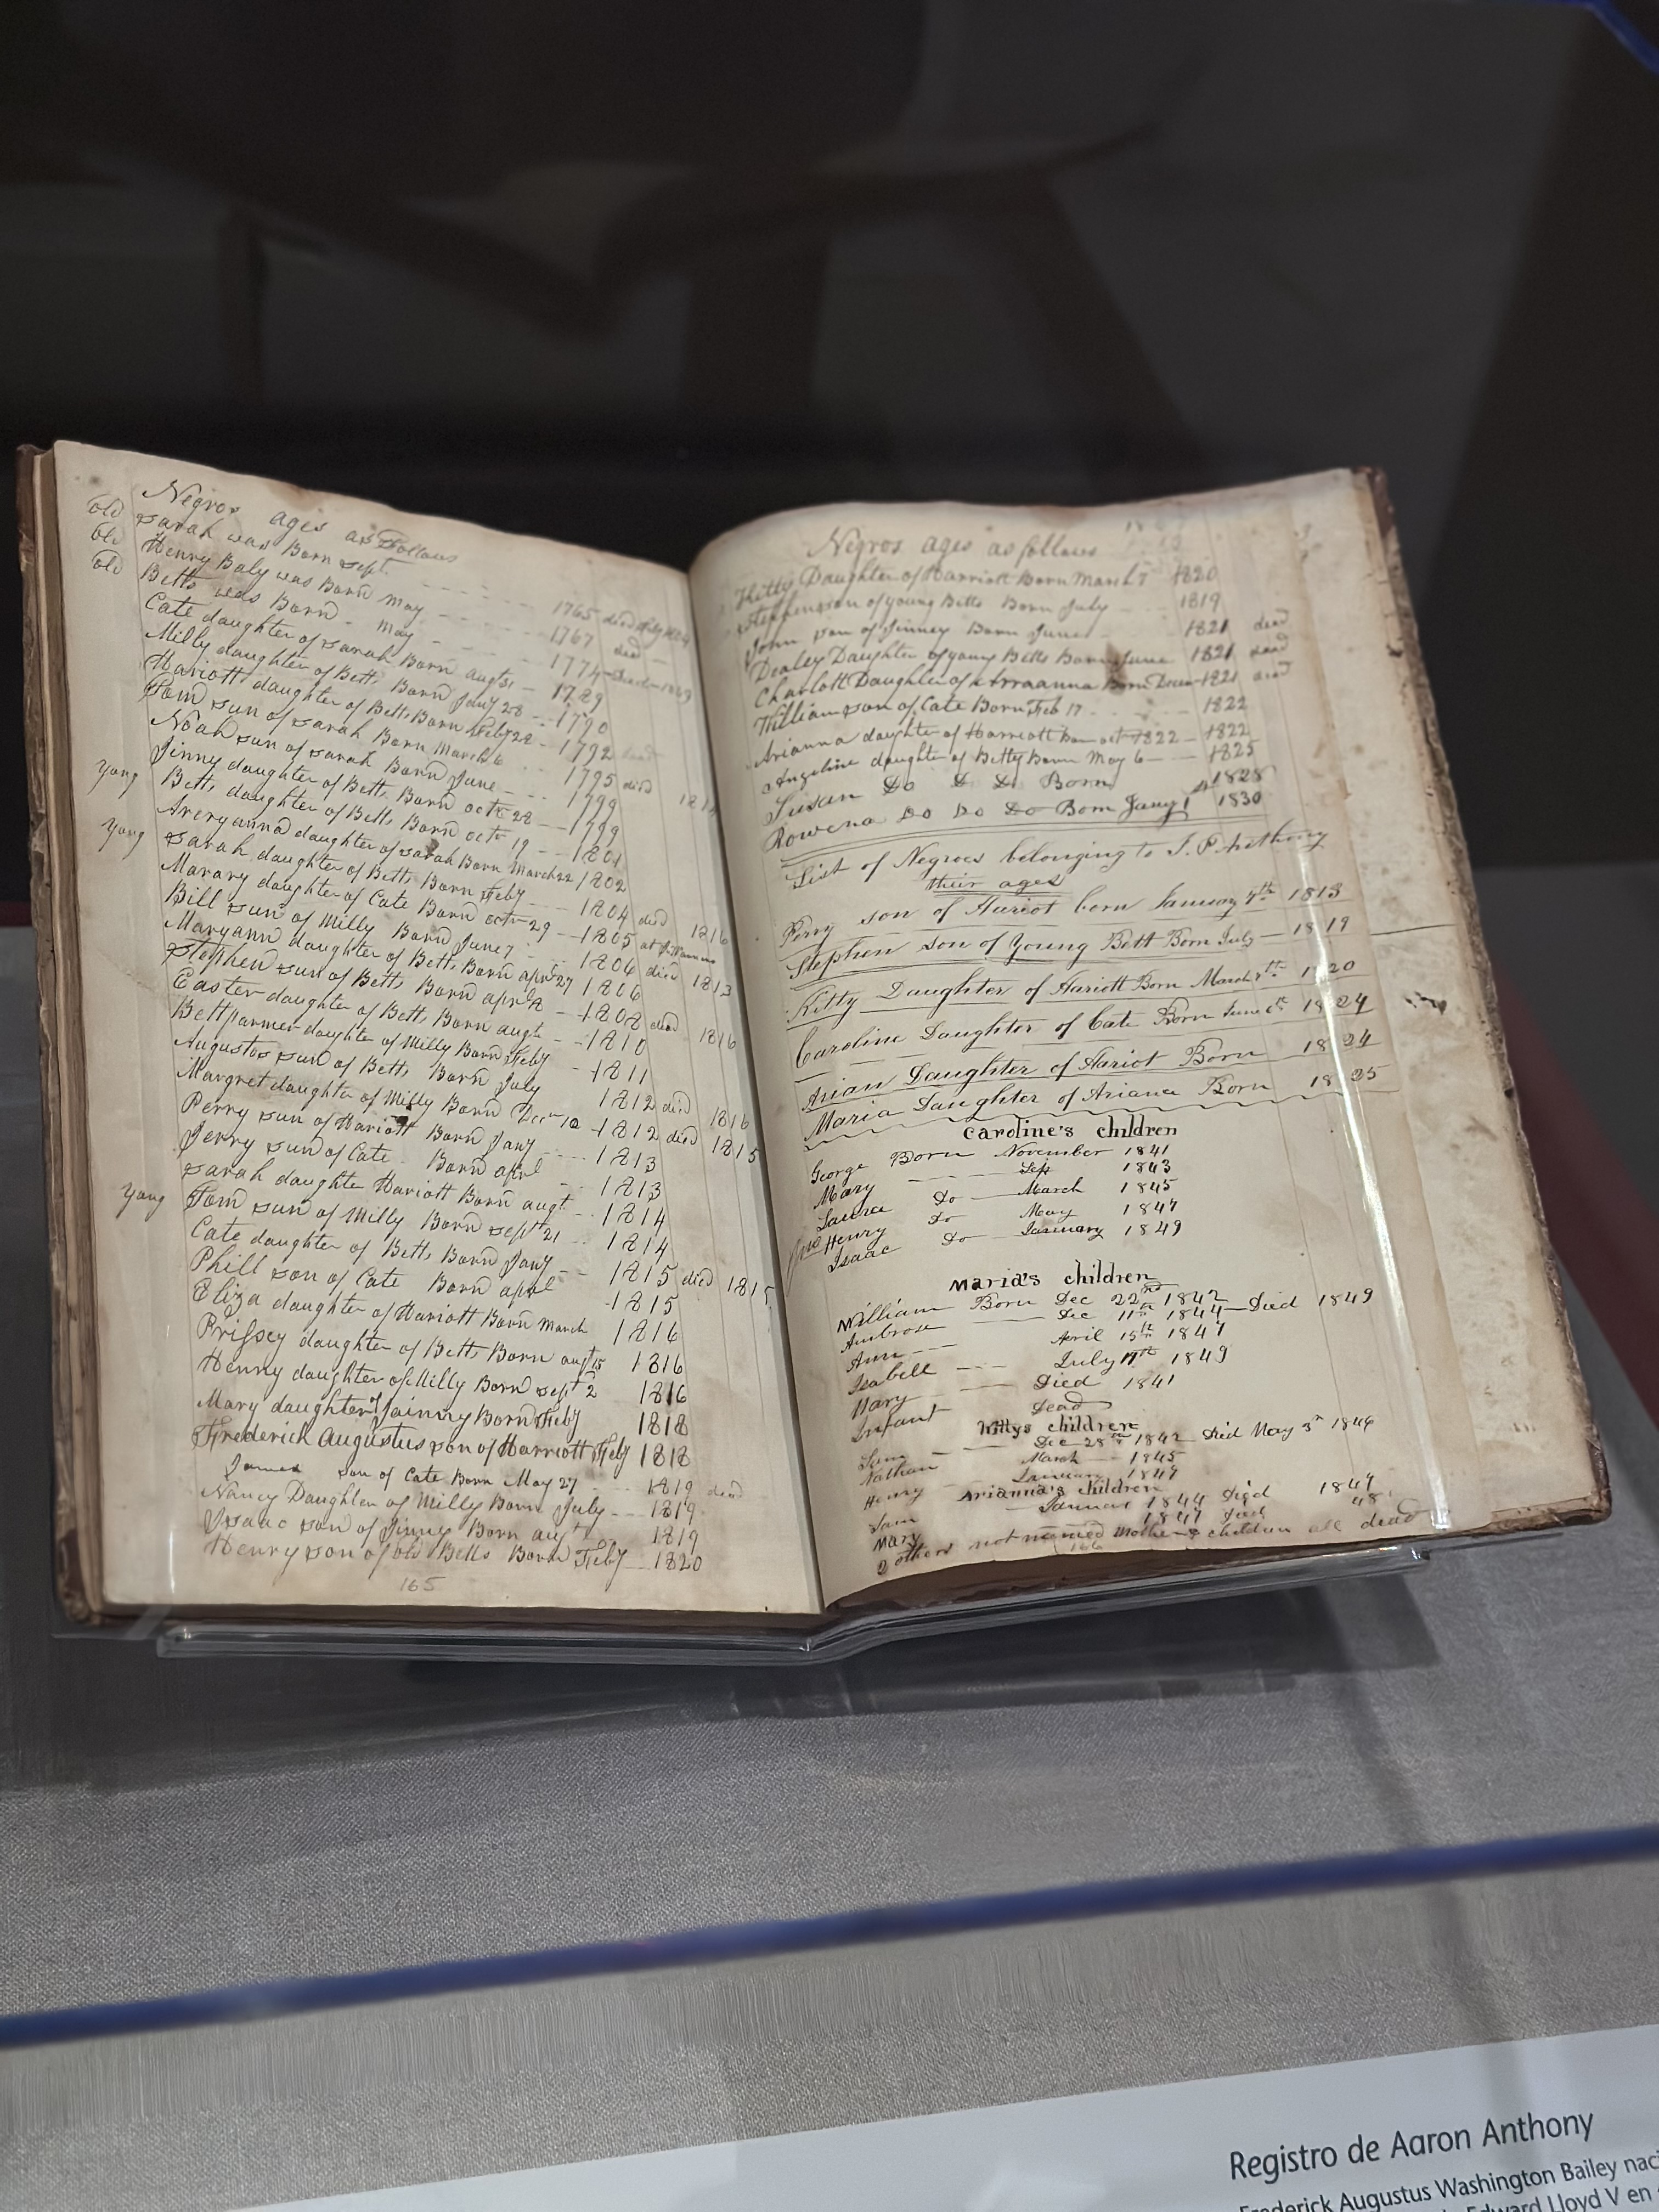 Negros ages as Follows
old Sarah was Born Sept. 1765 died
old Henry Baly was Born May 1767 died
old Betts was Born May 1774
Cate daughter of Sarah Born augt 1789
Milly daughter of Betts Born Jany 28 1790
Hariott daughter of Betts Born Feby 28 1792
Tom sun of Sarah Born March 6 1795 died
Noah sun of Sarah Born June 1799
Jinny daughter of Betts Born octr 28 1799
yong Betts daughter of Betts Born octr 19 1801
Averyanna daughter of Sarah Born March 22 1802
yong Sarah daughter of Betts Born Feby 1804 died 1816
Marary daughter of Cate Born octr 29 1805 at
Bill sun of Milly Born June 7 1806 died 1813
Maryann daughter of Betts Born aprl 27 1806
Stephen sun of Betts Born aprl 2 1808 died 1816
Easter daughter of Betts Born augt 1810
Bett parmer daughter of Milly Born Feby 1811
Augustos sun of Betts Born July 1812 died 1816
Margret daughter of Milly Born Decr 10 1812 died 1815
Perry sun of Hariott Born Jany 1813
Jerry sun of Cate Born aprl 1813
Sarah daughter Hariott Born augt 1814
yong Tom sun of Milly Born Sept 21 1814
Cate daughter of Betts Born Jany 1815 died 1815
Phill son of Cate Born aprl 1815
Eliza daughter of Hariott Born March 1816
Prissey daughter of Betts Born augt 15 1816
Henny daughter of Milly Born Sept 2 1816
Mary daughter of Jainny Born Feby 1818
Frederick Augustus son of Harriott Feby 1818
James son of Cate Born May 27 1819 dead
Nancy Daughter of Milly Born July 1819
Isaac son of Jinney Born augt 1819
Henry son of old Betts Born Feby 1820
165
Negros ages as follows
Kitty Daughter of Harriott Born March 1820
Stephen son of young Betts Born July 1819
John son of Jinney Born June 1821 dead
Dealey Daughter of young Betts Born June 1821 dead
Charlott Daughter of Arraanna Born Decm 1821 died
William son of Cate Born Feb 17 1822
Arianna daughter of Harriott born oct 1822 1822
Angeline daughter of Betty Born May 6 1825
Susan Do Do Do Born 1828
Rowena Do Do Do Born Jany 1st 1830
List of Negroes belonging to J. P. Anthony
their ages
Perry son of Hariot born January 1813
Stephen son of Young Bett Born July 1819
Kitty Daughter of Hariott Born March 8th 1820
Caroline Daughter of Cate Born June 6th 1824
Arian Daughter of Hariot Born 1824
Maria Daughter of Ariana Born 1825
Caroline's children
George Born November 1841
Mary Sep 1843
Laura Do March 1845
Jno Henry Do May 1847
Isaac Do January 1849
Maria's children
William Born Dec 22nd 1842
Ambrose Dec 11th 1844 Died 1849
Ann April 15th 1847
Isabell July 19th 1849
Mary Died 1841
Infant Dead
Kittys children
Sam Dec 28th 1842 Died May 3rd 1846
Nathan March 1845
Henry January 1847
Arianna's children
Sam 1844 Died 1847
Mary 1847 Died 48
2 others not named Mother & children all dead
166
Registro de Aaron Anthony
Frederick Augustus Washington Bailey nac
Edward Lloyd V en